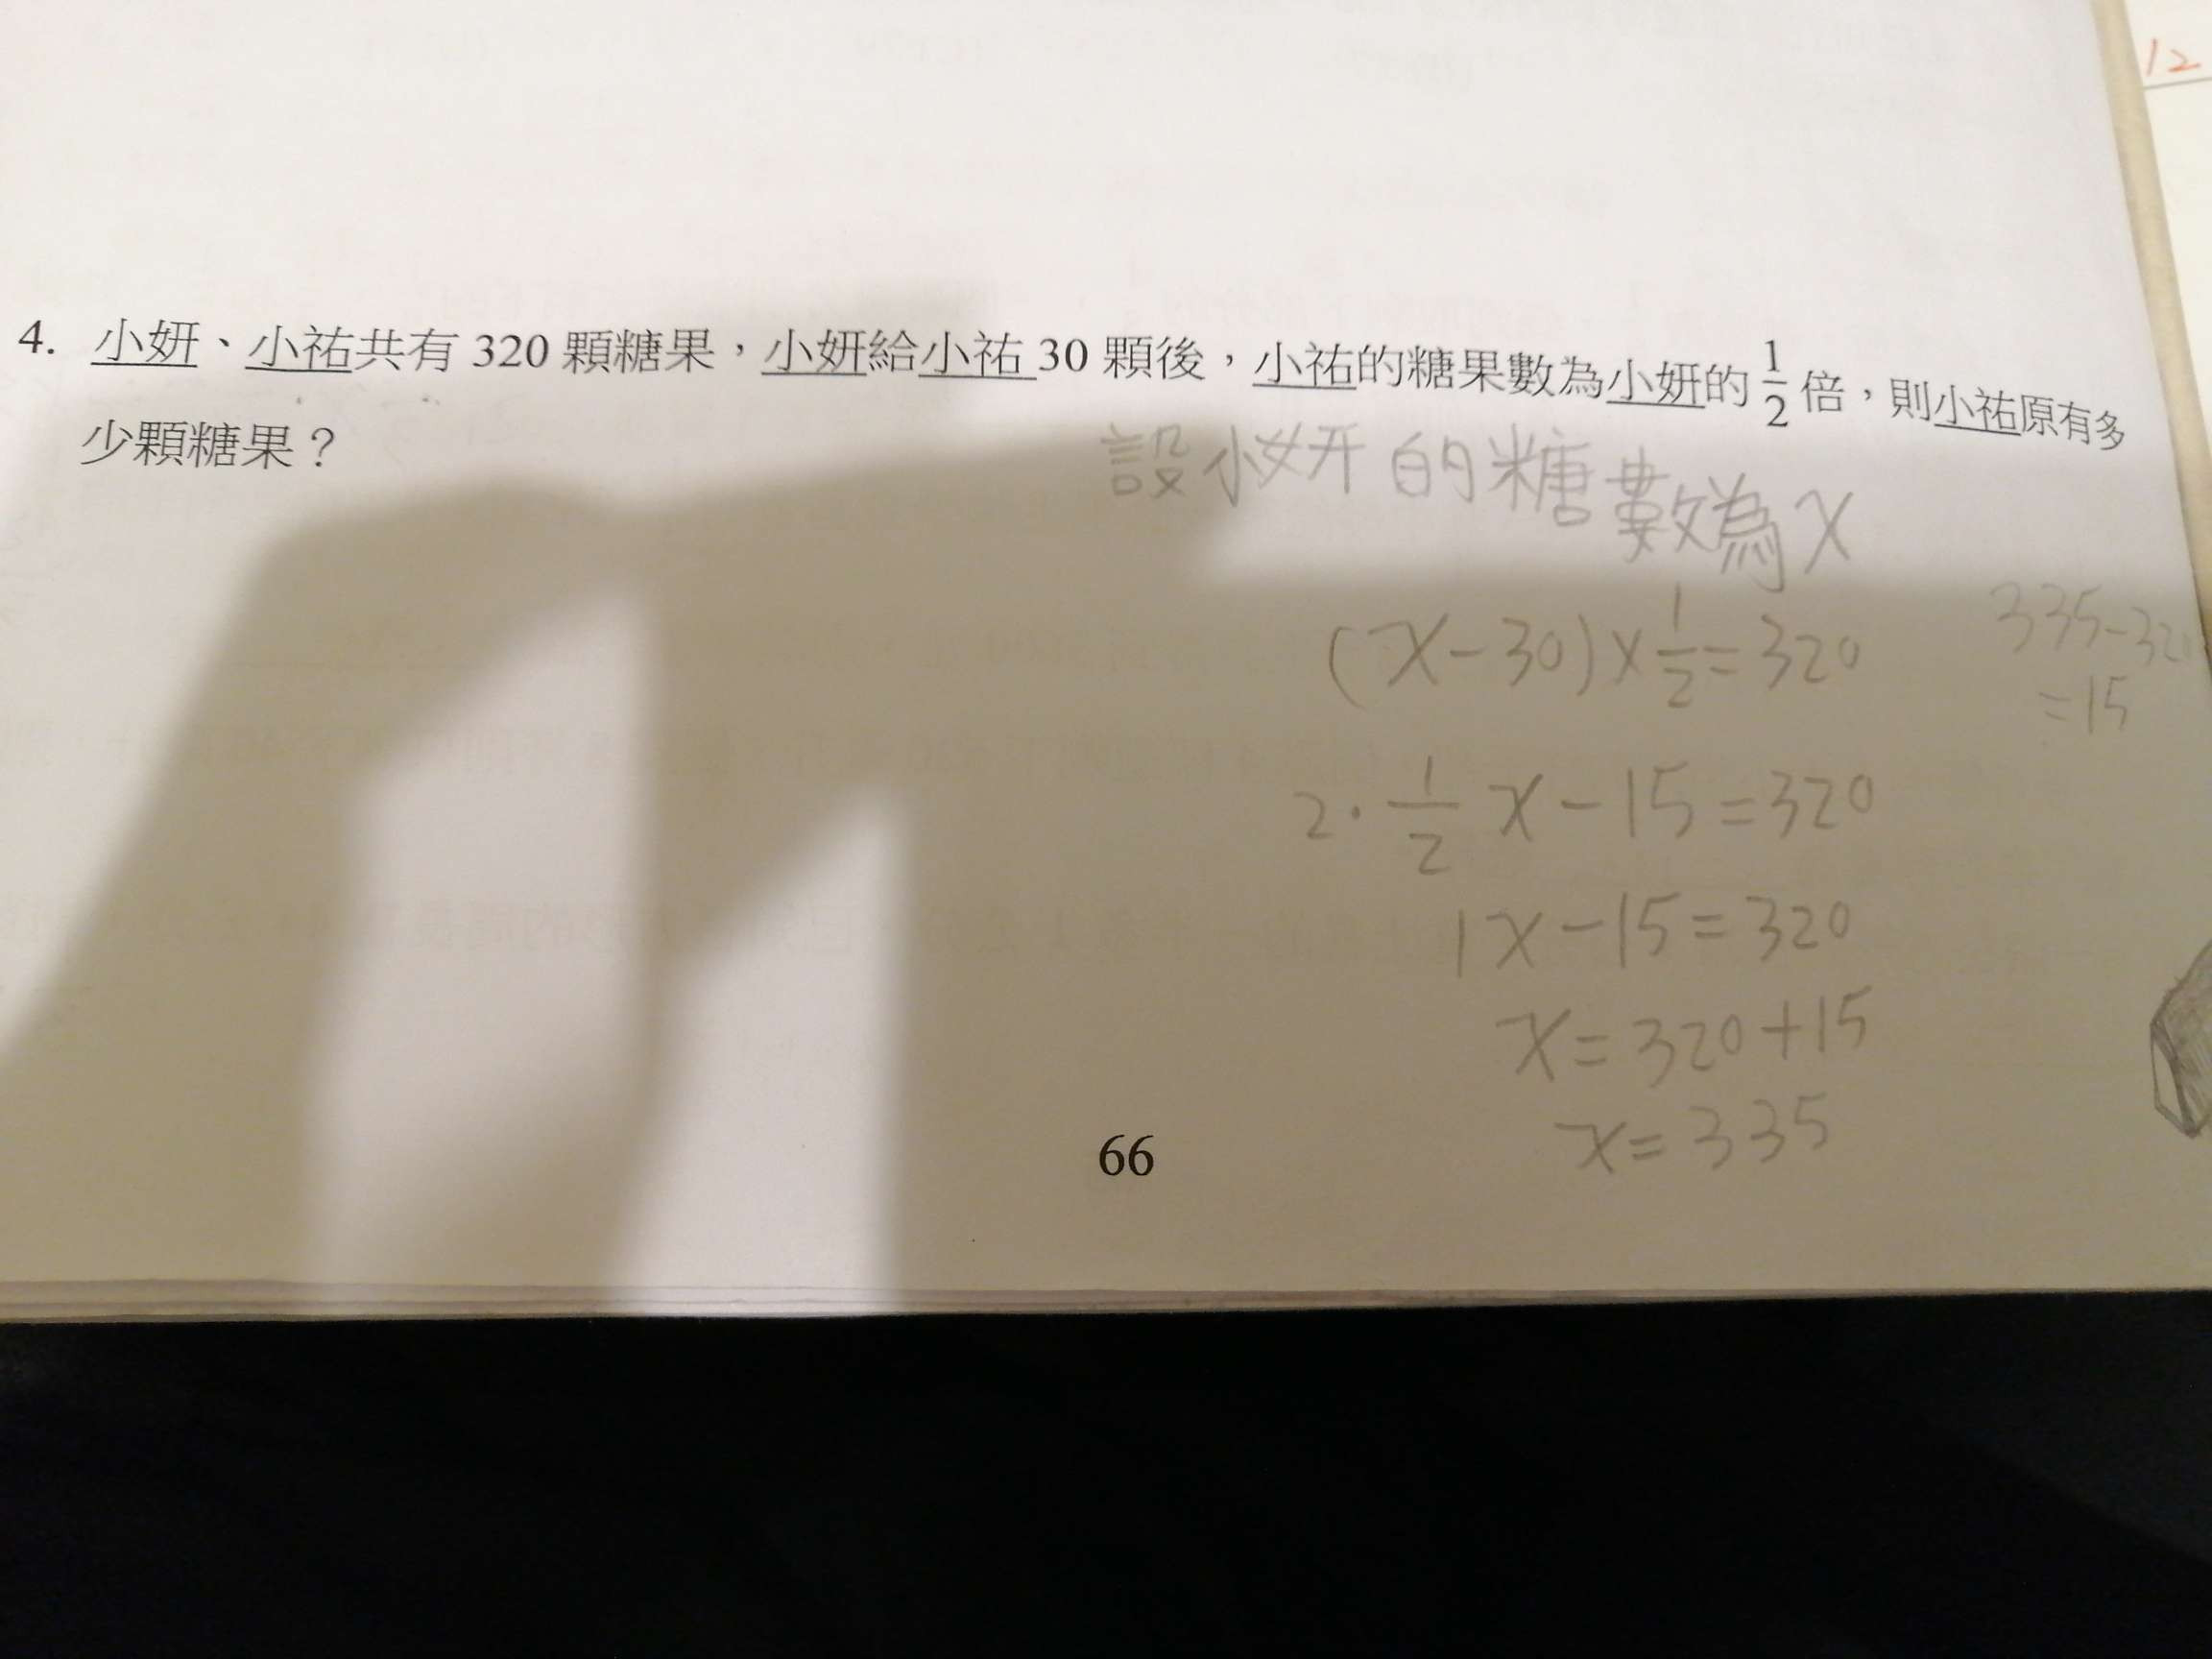 12
4. 小妍、小祐共有 320 顆糖果，小妍給小祐 30 顆後，小祐的糖果數為小妍的 1/2 倍，則小祐原有多
少顆糖果？
設小妍的糖數為x
(x-30)×1/2=320
335-320
=15
2·1/2 x-15=320
1x-15=320
x=320+15
x=335
66